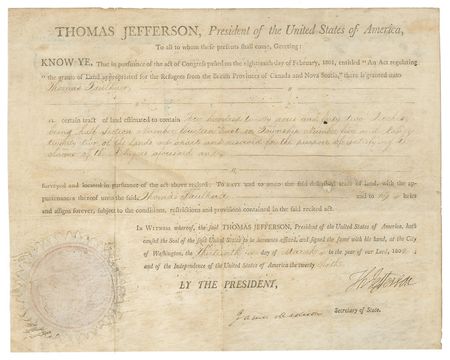 THOMAS JEFFERSON, President of the United States of America,
To all to whom these presents shall come, Greeting:
KNOW YE, That in pursuance of the act of Congress passed on the eighteenth day of February, 1801, entitled "An Act regulating
"the grants of Land appropriated for the Refugees from the British Provinces of Canada and Nova Scotia," there is granted unto
Thomas Faulkner
a certain tract of land estimated to contain
being half section number in Township number
twenty two of the lands and reserved for the purpose of satisfying the
claims of the
surveyed and located in pursuance of the act above recited: To have and to hold the said described tract of land, with the appurtenances
thereof unto the said Thomas Faulkner and to his heirs
and assigns forever, subject to the conditions, restrictions and provisions contained in the said recited act.
In Witness whereof, the said THOMAS JEFFERSON, President of the United States of America, hath
caused the Seal of the said United States to be hereunto affixed, and signed the same with his hand, at the City
of Washington, the day of March in the year of our Lord, 180
and of the Independence of the United States of America the twenty sixth
BY THE PRESIDENT,
Th: Jefferson
James Madison Secretary of State.